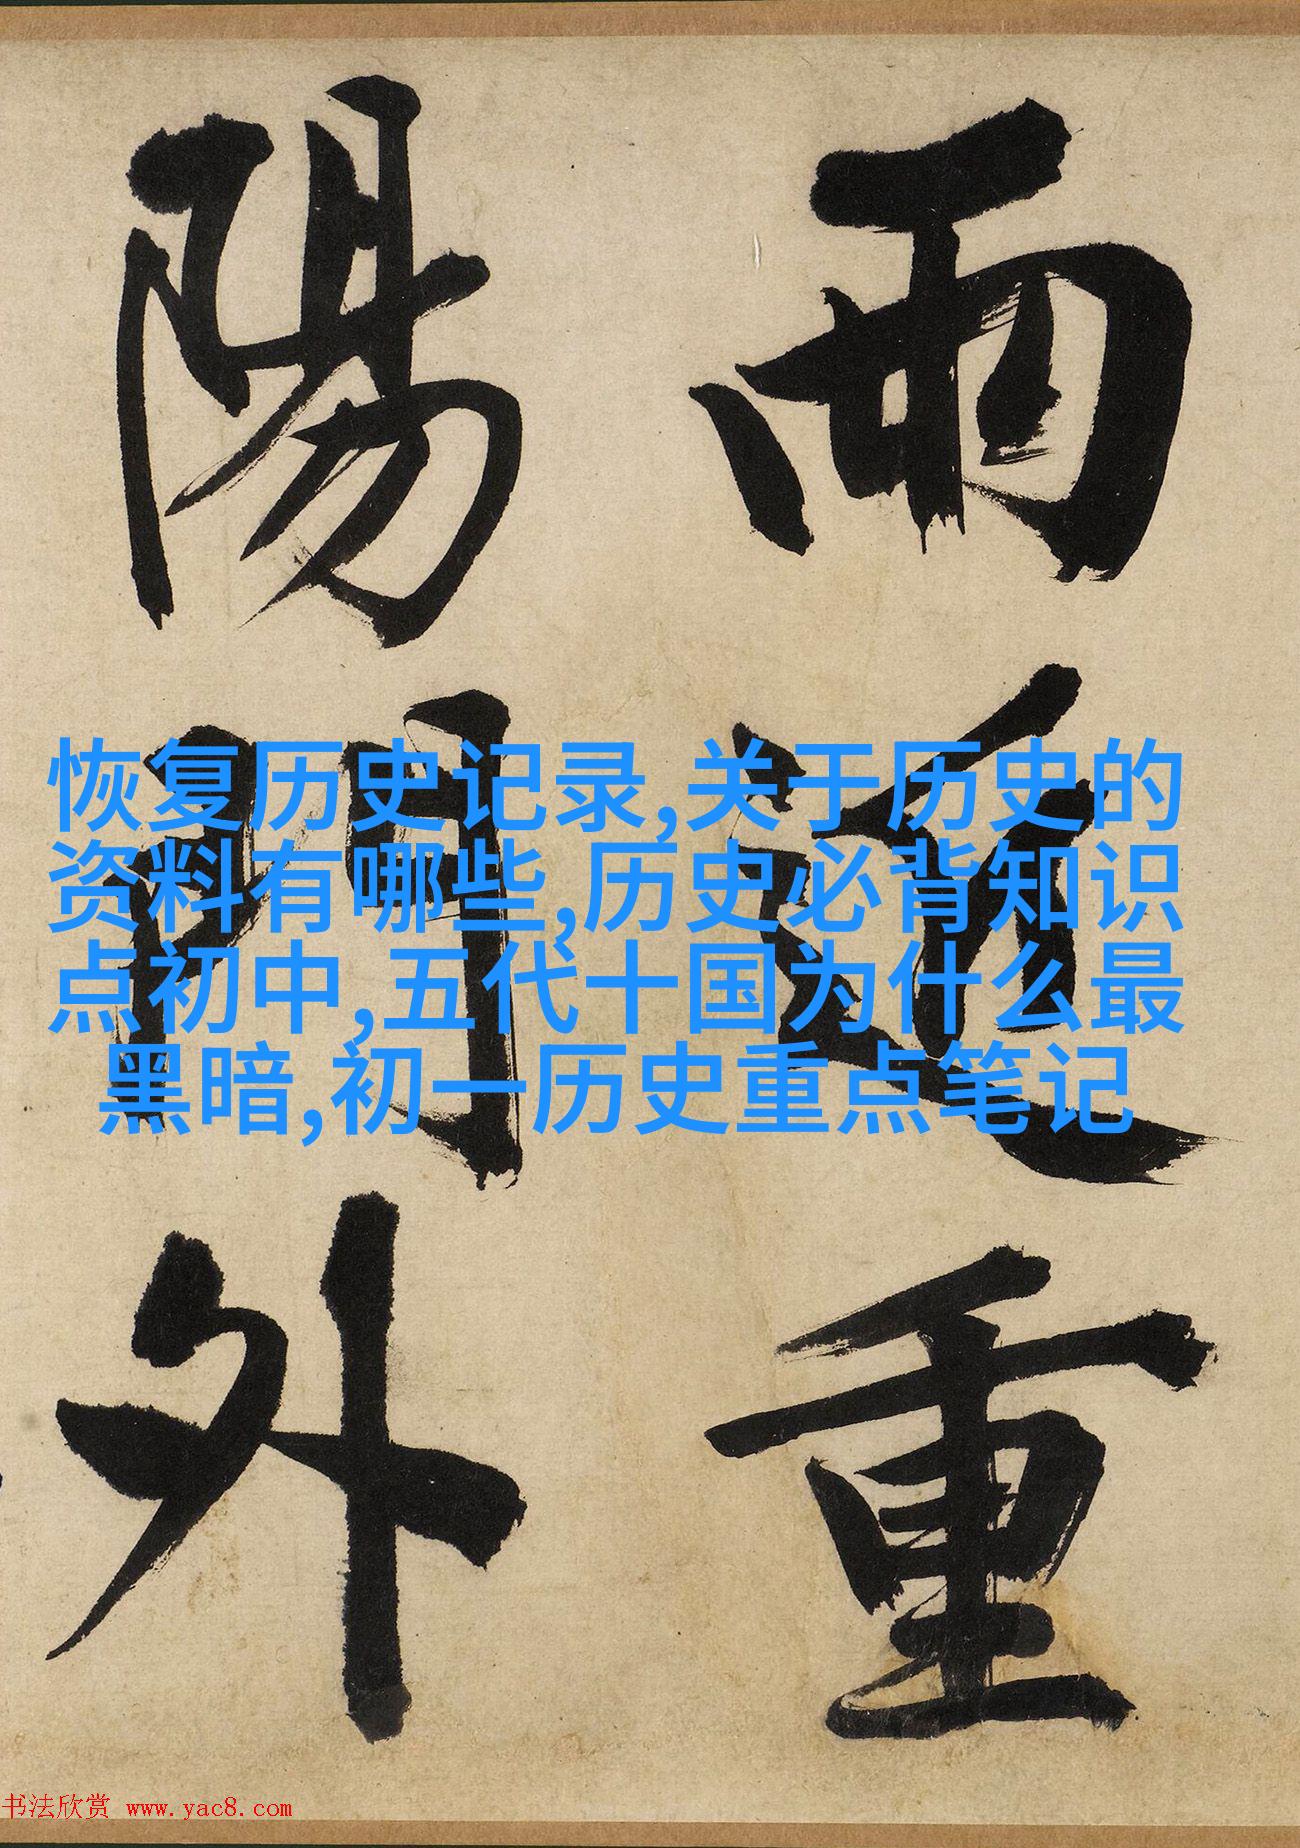 雨近重
陽門外
恢复历史记录,关于历史的
资料有哪些,历史必背知识
点初中,五代十国为什么最
黑暗,初一历史重点笔记
书法欣赏 www.yac8.com